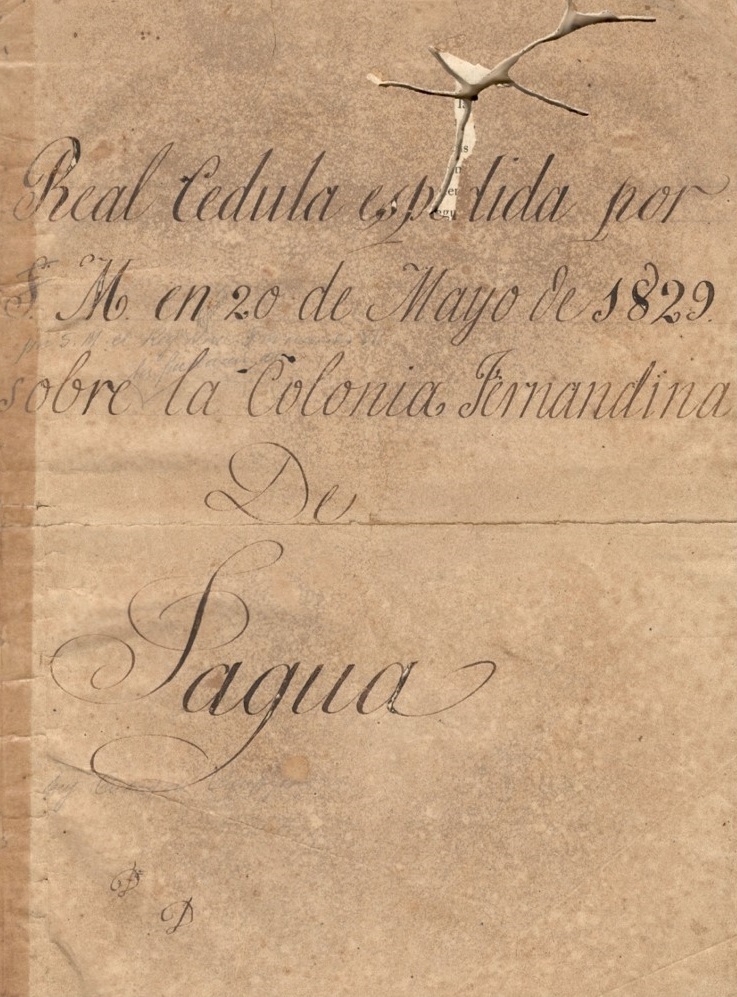 Real Cedula espedida por
S. M. en 20 de Mayo de 1829.
sobre la Colonia Fernandina
De
Sagua